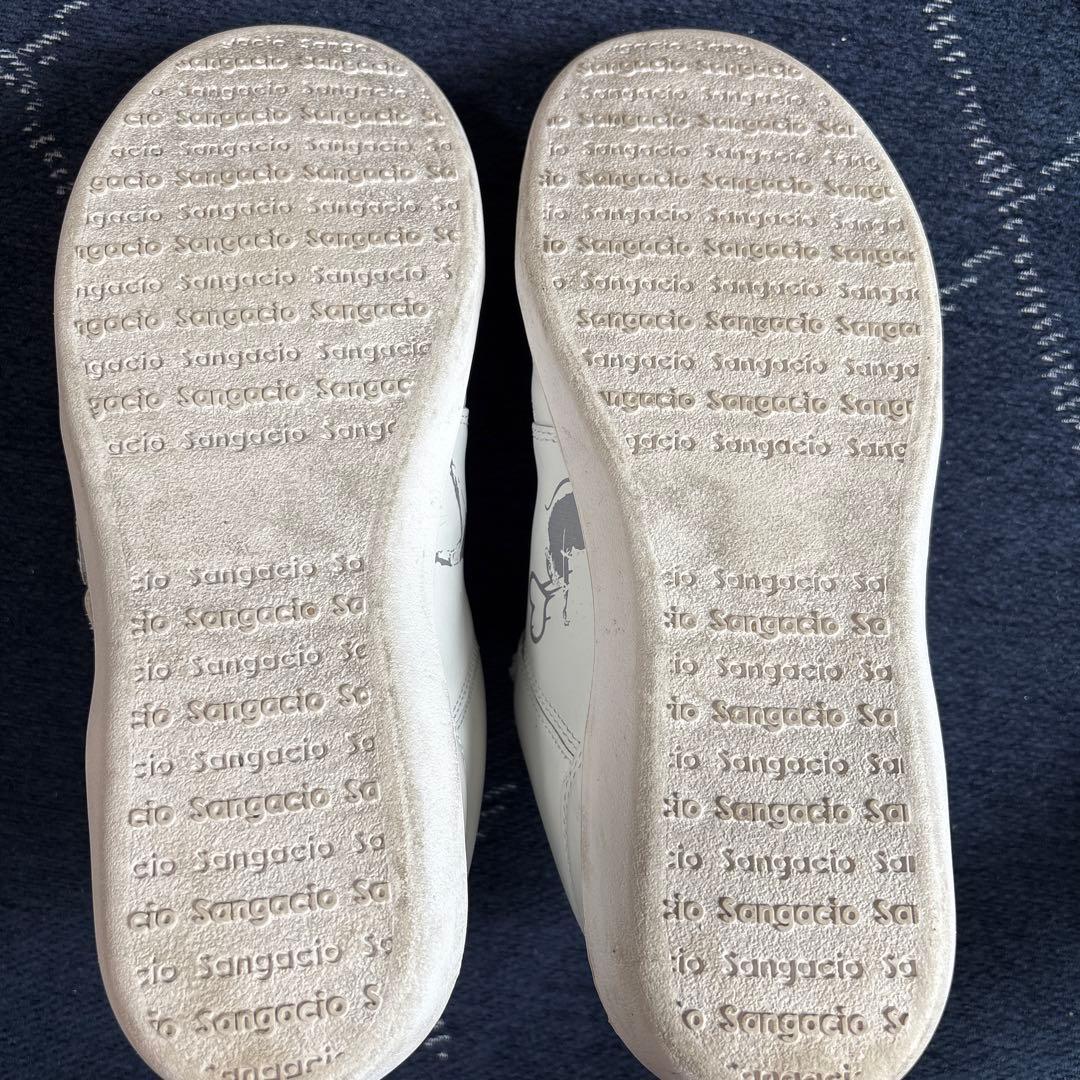 Sangacio Sangacio
Sangacio Sangacio
Sangacio
Sangacio Sangacio
Sangacio
Sangacio Sangacio
Sangacio Sangacio
Sangacio Sangacio
Sangacio Sangacio
Sangacio Sangacio
Sangacio Sangacio
Sangacio
Sangacio
Sangacio
Sangacio
Sangacio
Sangacio
Sangacio
Sangacio
Sangacio
Sangacio
Sangacio
Sangacio
Sangacio Sangacio
Sangacio Sangacio
Sangacio Sangacio
Sangacio Sangacio
Sangacio Sangacio
Sangacio Sangacio
Sangacio Sangacio
Sangacio Sangacio
Sangacio Sangacio
Sangacio Sangacio
Sangacio Sangacio
Sangacio
Sangacio
Sangacio
Sangacio
Sangacio
Sangacio
Sangacio
Sangacio
Sangacio
Sangacio
Sangacio
Sangacio